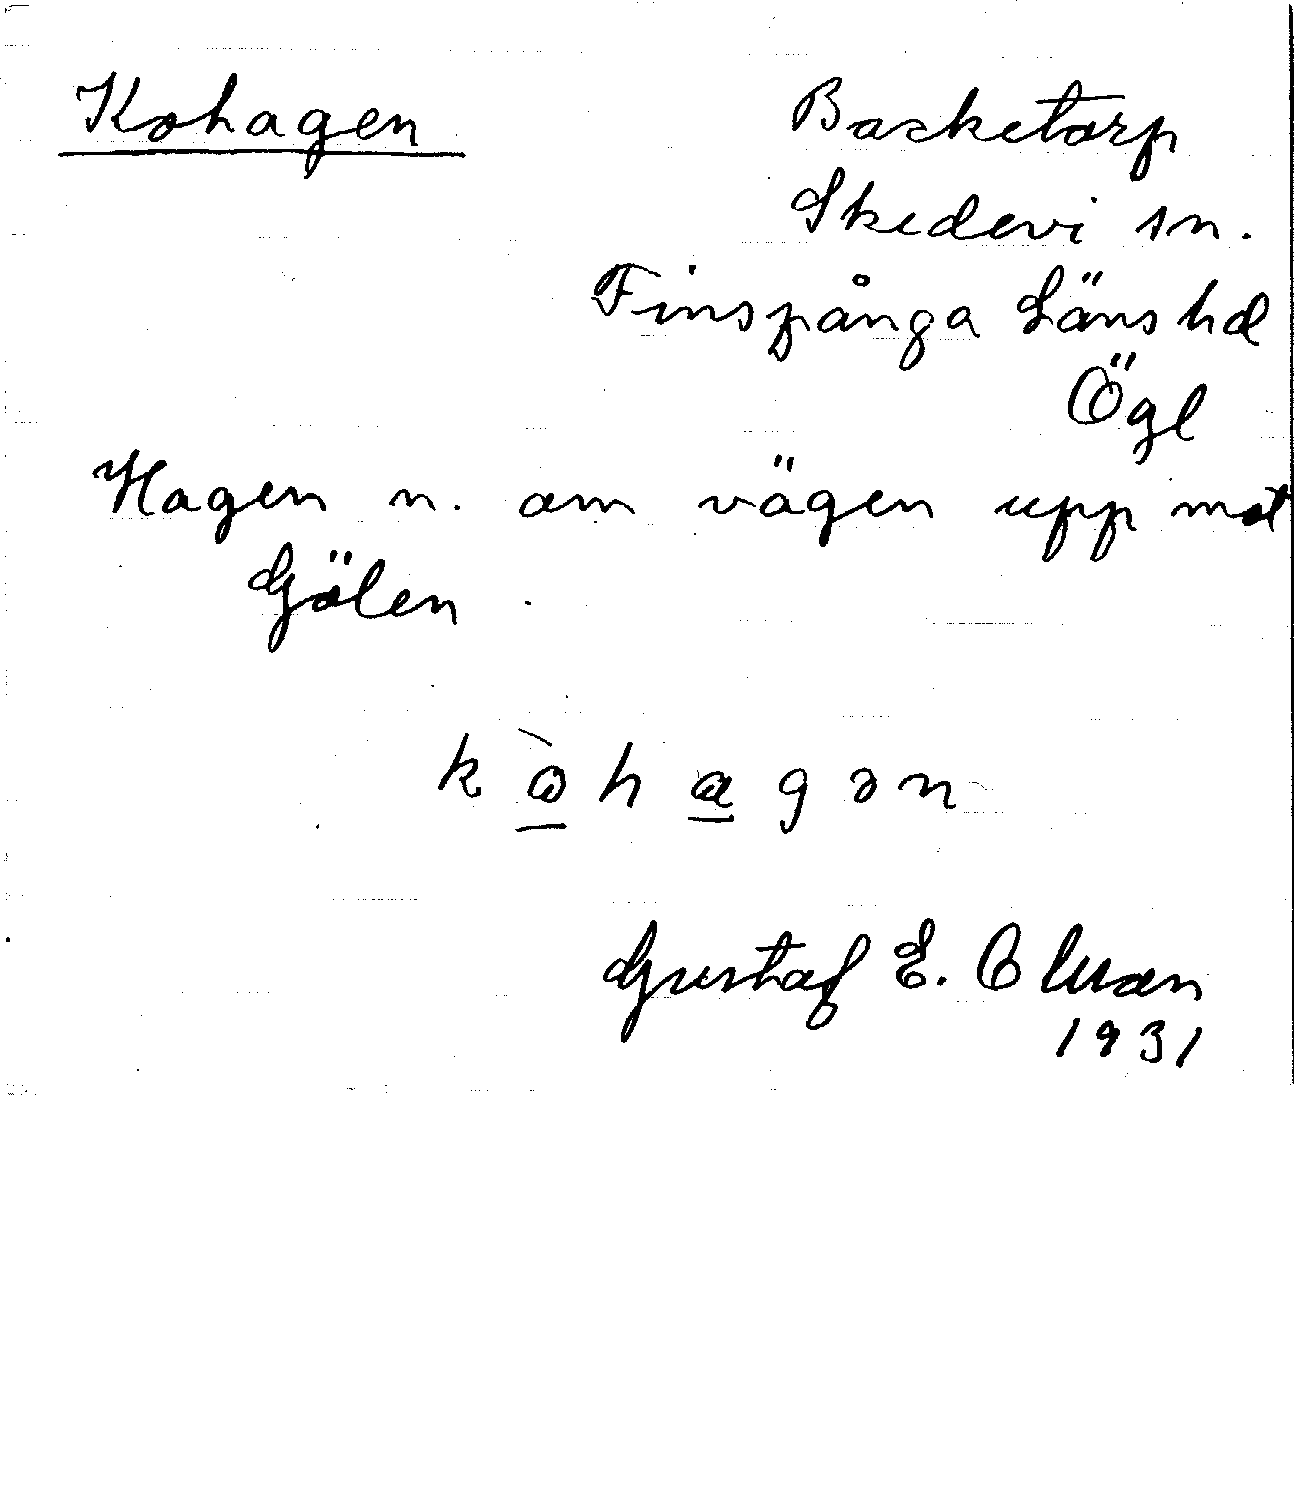 Kohagen
Basketorp
Skedevi sn.
Finspånga Läns hd
Ögl
Hagen n. om vägen upp mot
Gölen.
k ò h a g ə n
Gustaf E. Olsson
1931